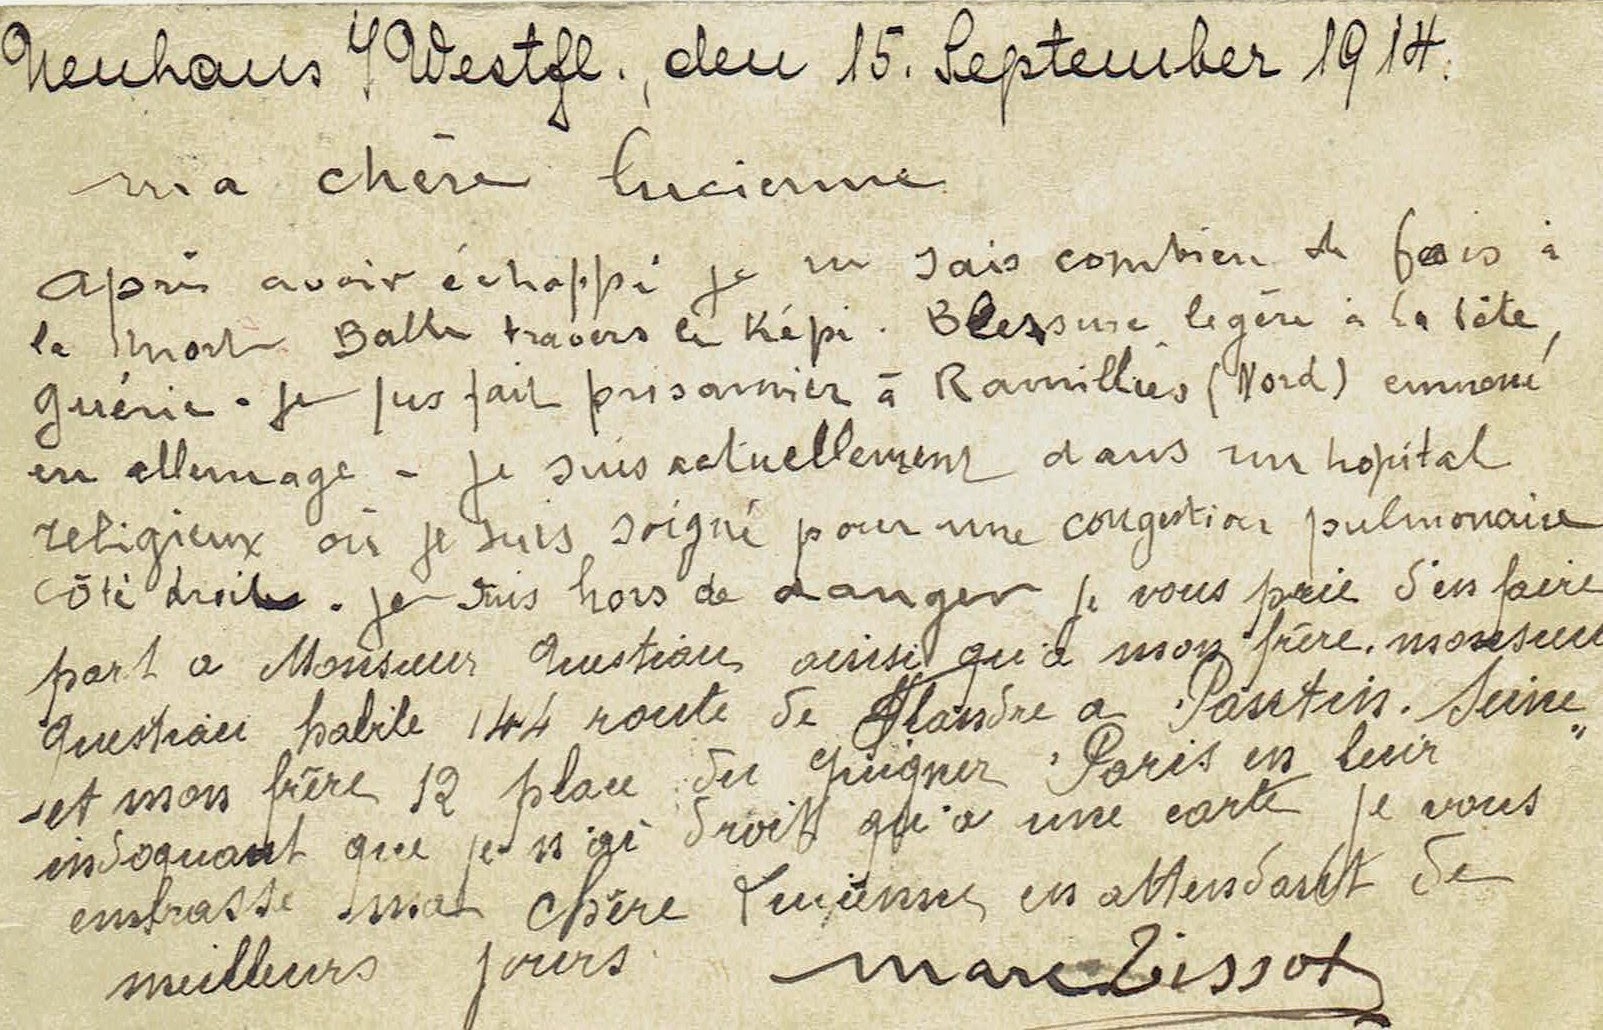 Neuhaus i/Westfl., den 15. September 1914.
ma chère Lucienne
Après avoir échappé je ne sais combien de fois à
la mort Balle travers le Képi. Blessure legère à la tête,
guérie. je fus fait prisonnier à Ramillies (Nord) emmené
en allemage - je suis actuellement dans un hopital
religieux où je suis soigné pour une congestion pulmonaire
côté droite. je suis hors de danger je vous prie d'en faire
part a Monsieur Questiau ainsi qu'a mon frère. monsieur
Questiau habite 144 route de flandre a Pantin. Seine
et mon frère 12 place du Paris en leur
indoquant que je n'ai droit qu'a une carte je vous
embrasse ma chère Lucienne en attendant de
meilleurs jours Marc Tissot